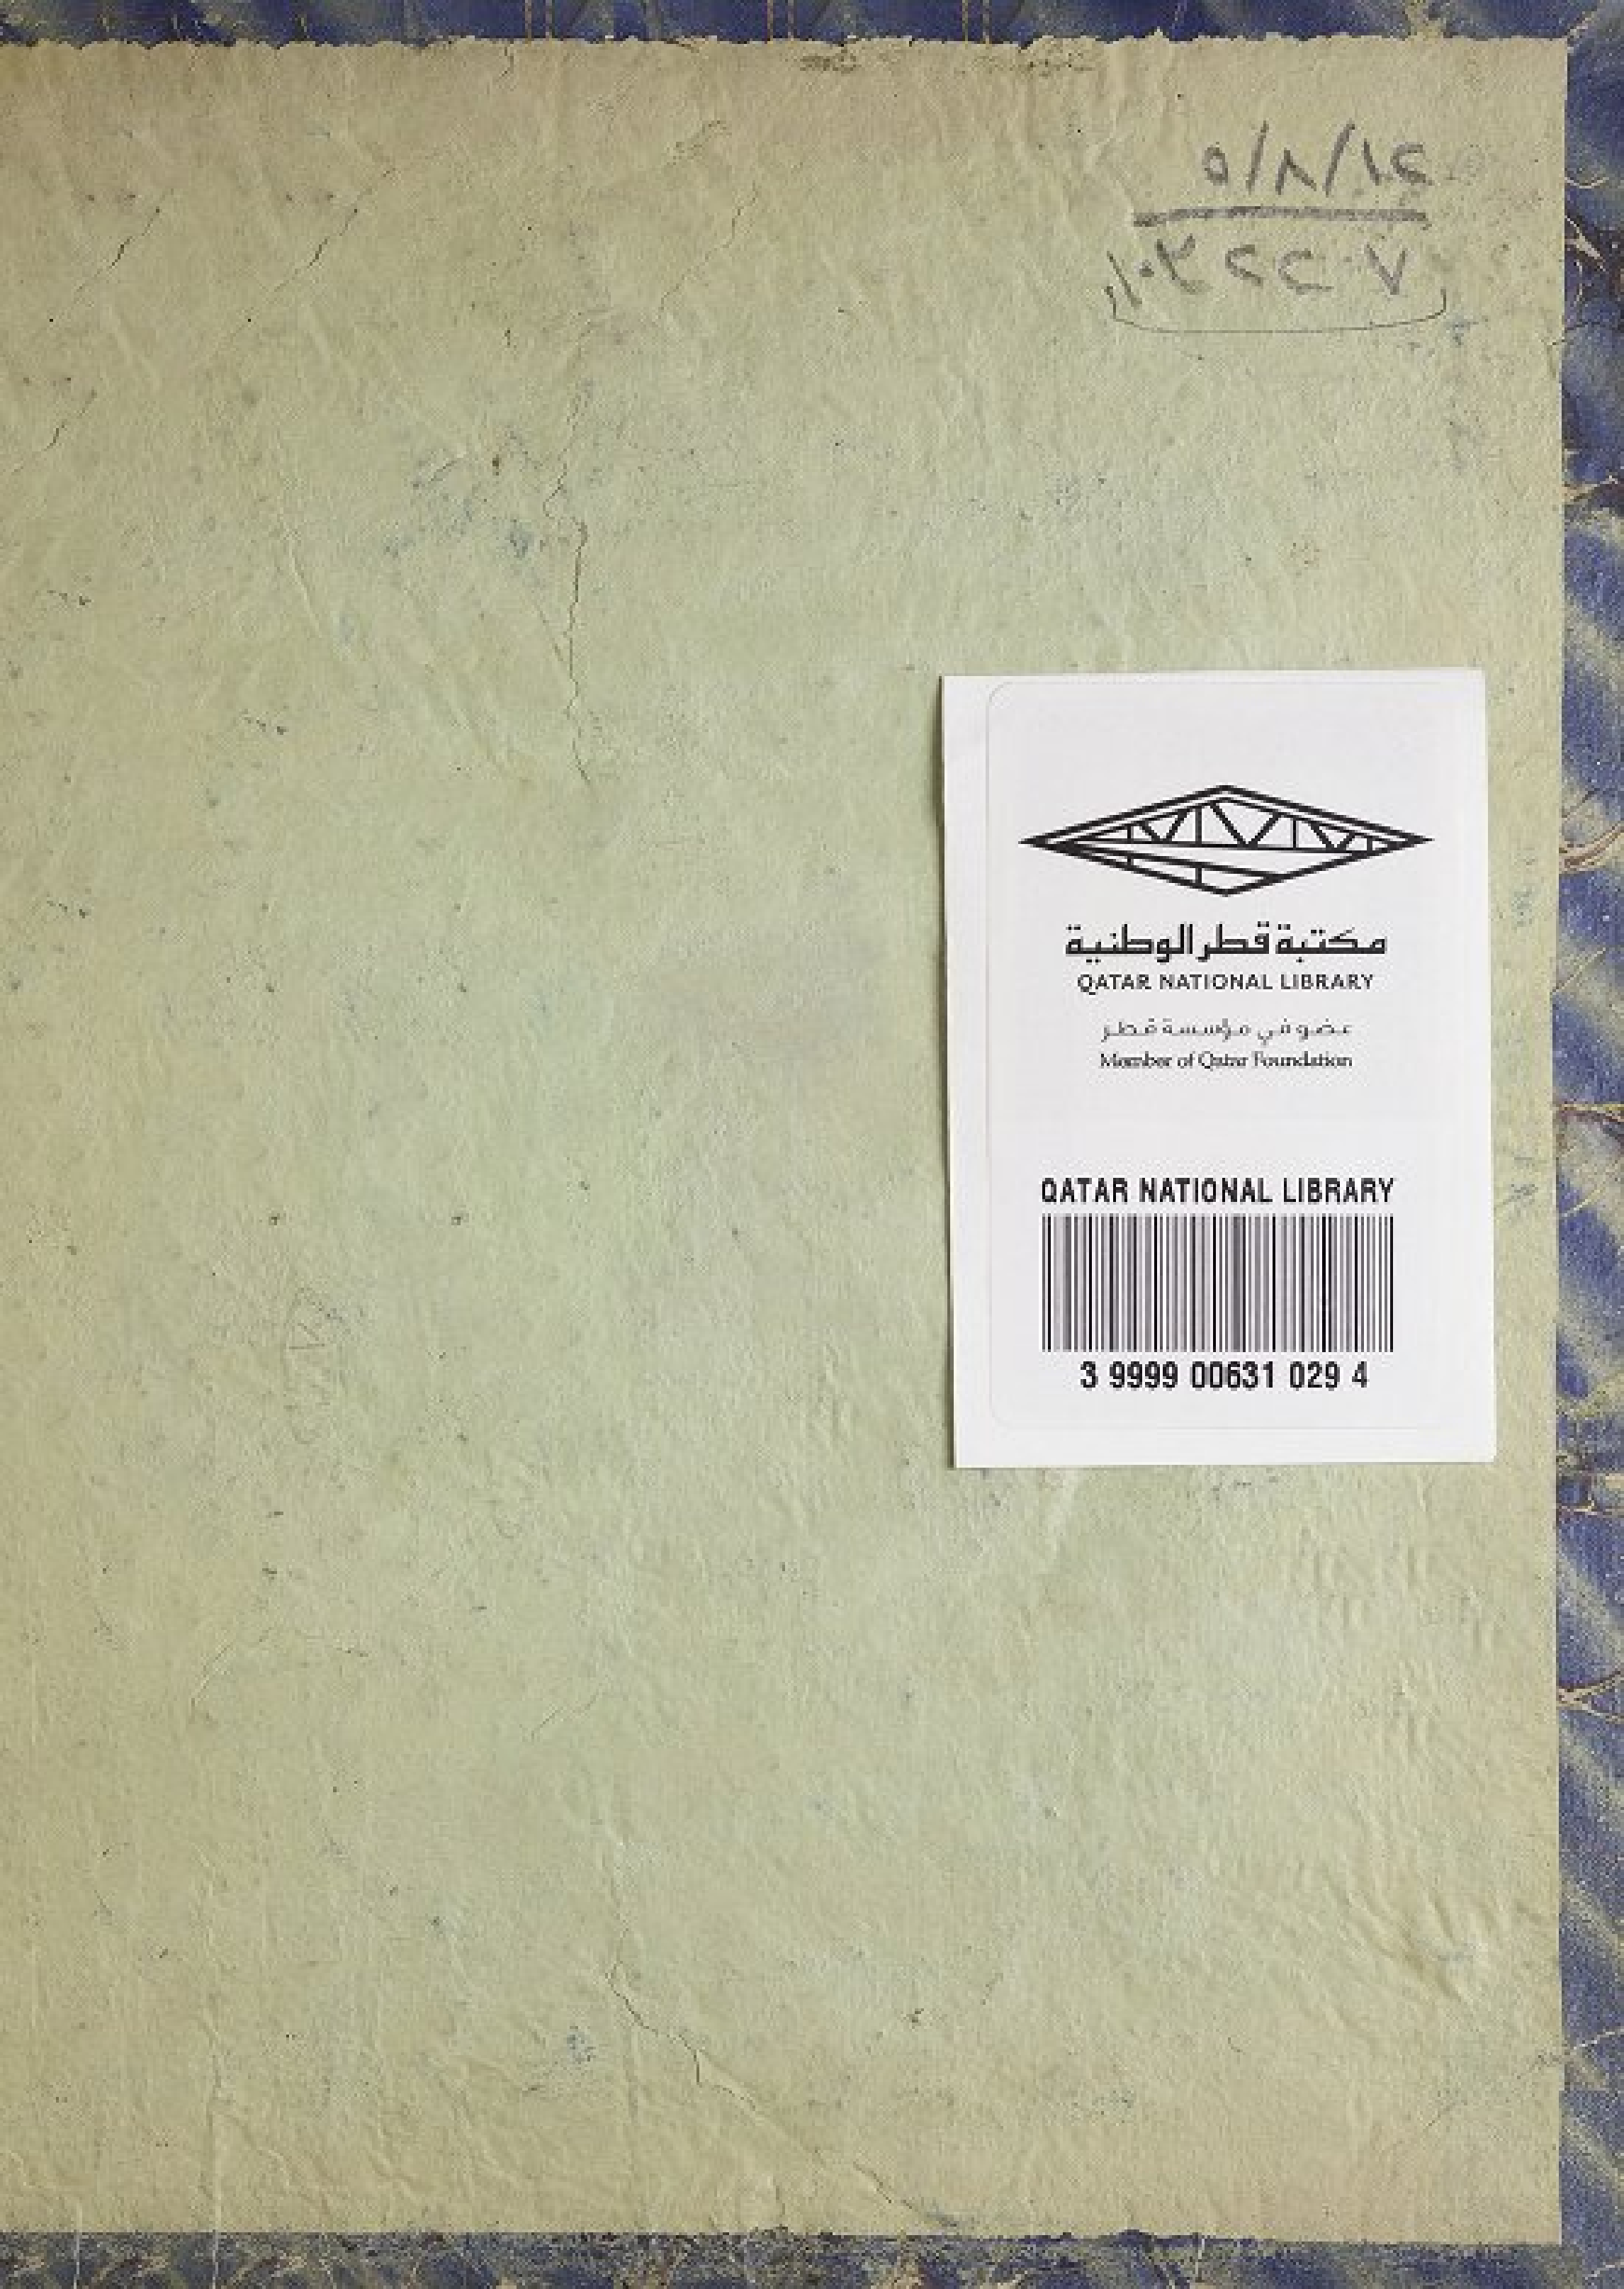 ٥/٨/١٤
مكتبة قطر الوطنية
QATAR NATIONAL LIBRARY
عضو في مؤسسة قطر
Member of Qatar Foundation
QATAR NATIONAL LIBRARY
3 9999 00631 029 4